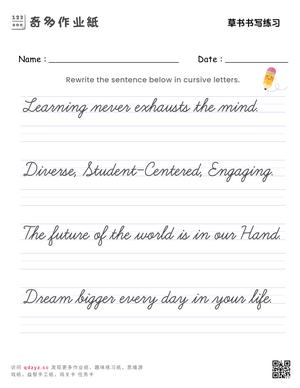 奇多作业紙
草书书写练习
Name :
Date :
Rewrite the sentence below in cursive letters.
Learning never exhausts the mind.
Diverse, Student-Centered, Engaging.
The future of the world is in our Hand.
Dream bigger every day in your life.
访问 qdzyz.cc 发现更多作业纸，趣味练习纸，思维游
戏纸，益智手工纸，闯关卡 任务卡